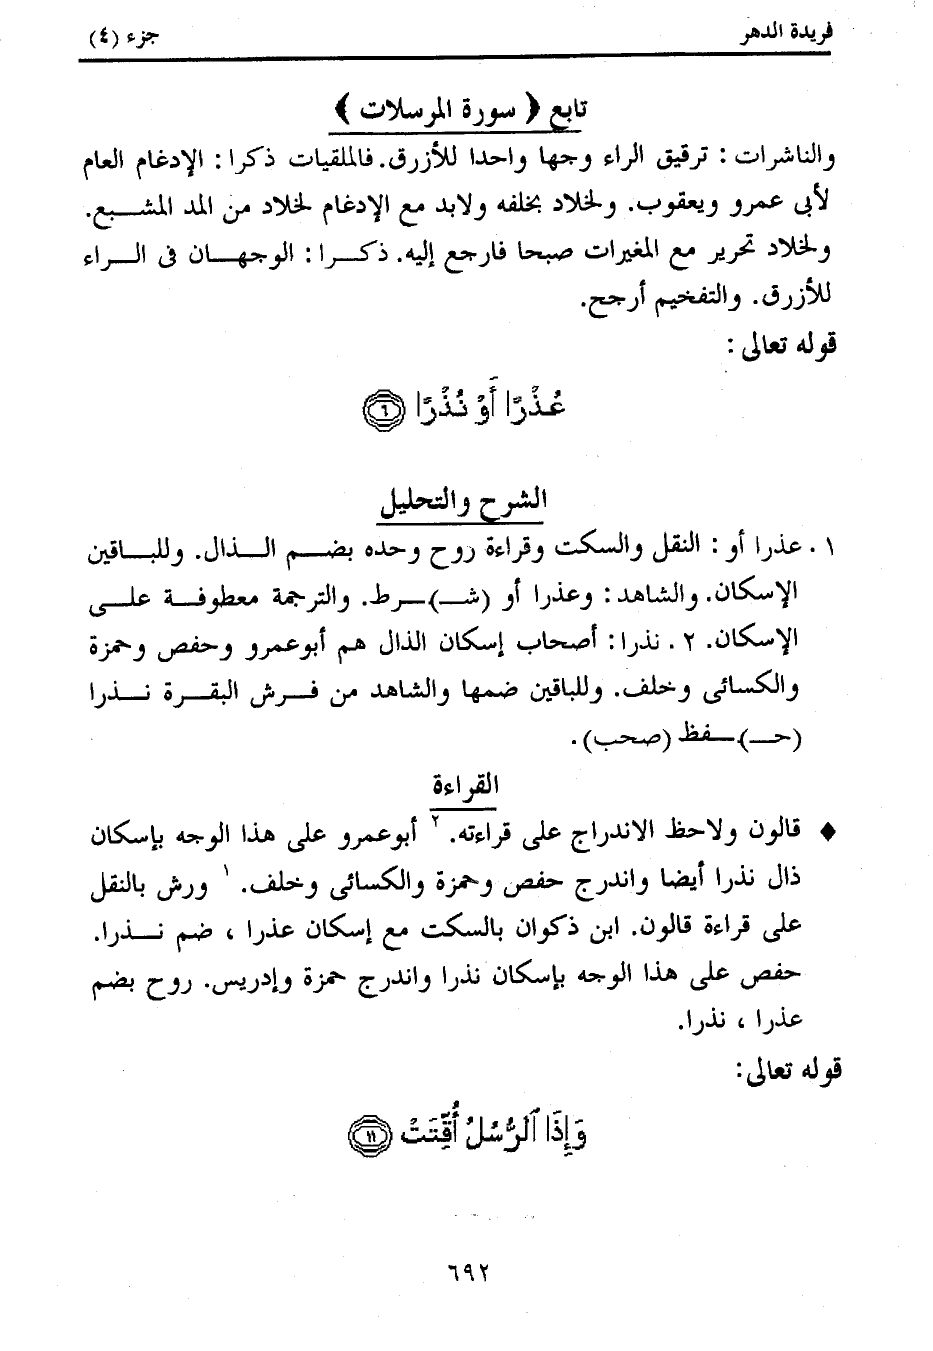 فريدة الدهر
جزء (٤)
تابع ﴿ سورة المرسلات ﴾
والناشرات : ترقيق الراء وجها واحدا للأزرق. فالملقيات ذكرا : الإدغام العام
لأبى عمرو ويعقوب. ولخلاد بخلفه ولابد مع الإدغام لخلاد من المد المشبع.
ولخلاد تحرير مع المغيرات صبحا فارجع إليه. ذكرا : الوجهان فى الراء
للأزرق. والتفخيم أرجح.
قوله تعالى :
عُذْرًا أَوْ نُذْرًا ٦
الشرح والتحليل
١ . عذرا أو : النقل والسكت وقراءة روح وحده بضم الذال. وللباقين
الإسكان. والشاهد : وعذرا أو (شـ)ـرط. والترجمة معطوفة على
الإسكان. ٢ . نذرا : أصحاب إسكان الذال هم أبوعمرو وحفص وحمزة
والكسائى وخلف. وللباقين ضمها والشاهد من فرش البقرة نذرا
(حـ)ـفظ (صحب).
القراءة
♦ قالون ولاحظ الاندراج على قراءته. ٢ أبوعمرو على هذا الوجه بإسكان
ذال نذرا أيضا واندرج حفص وحمزة والكسائى وخلف. ١ ورش بالنقل
على قراءة قالون. ابن ذكوان بالسكت مع إسكان عذرا ، ضم نذرا.
حفص على هذا الوجه بإسكان نذرا واندرج حمزة وإدريس. روح بضم
عذرا ، نذرا.
قوله تعالى:
وَإِذَا ٱلرُّسُلُ أُقِّتَتْ ١١
٦٩٢